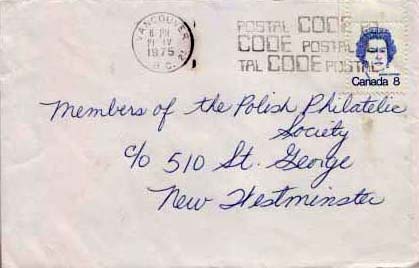 VANCOUVER
PM
1975
B.C.
POSTAL CODE PO
CODE POSTAL
TAL CODE POSTAL
Canada 8
Members of the Polish Philatelic
Society
c/o 510 St. George
New Westminster